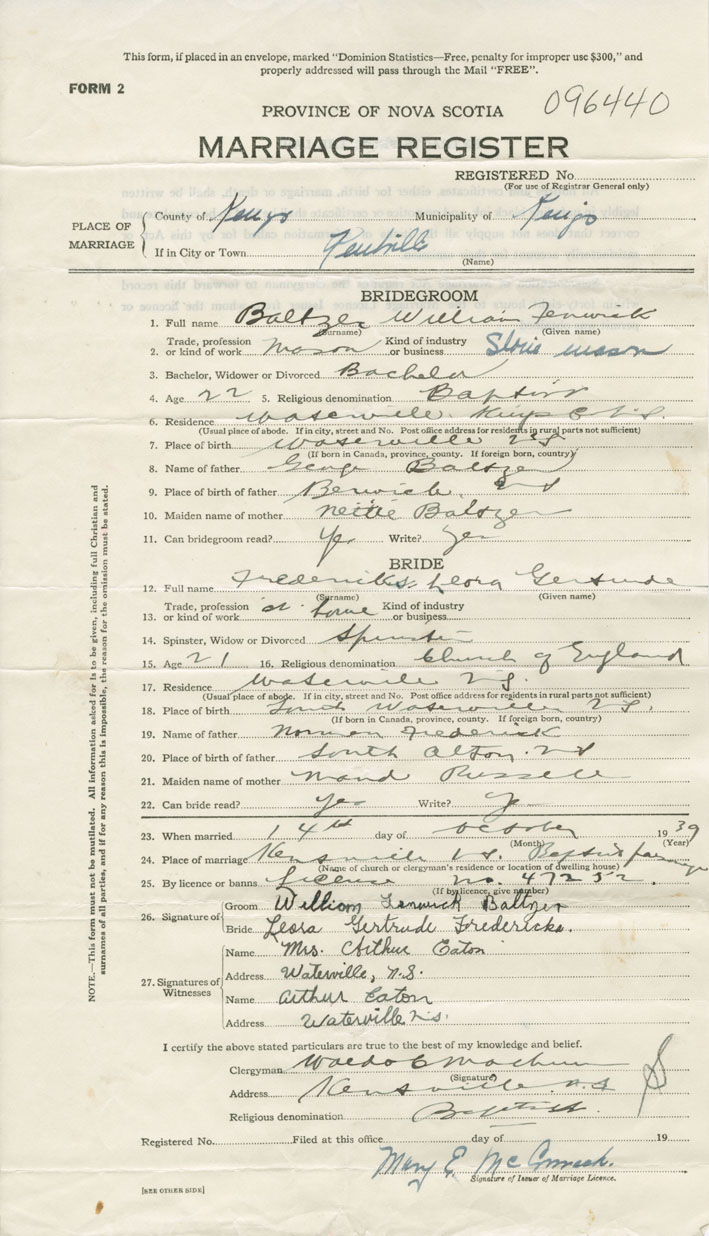 This form, if placed in an envelope, marked "Dominion Statistics—Free, penalty for improper use $300," and
properly addressed will pass through the Mail "FREE".
FORM 2
096440
PROVINCE OF NOVA SCOTIA
MARRIAGE REGISTER
REGISTERED No.
(For use of Registrar General only)
PLACE OF MARRIAGE
County of Kings Municipality of Kings
If in City or Town Kentville
(Name)
BRIDEGROOM
1. Full name Baltzer William Fenwick
(Surname) (Given name)
2. Trade, profession or kind of work Mason Kind of industry or business mason
3. Bachelor, Widower or Divorced Bachelor
4. Age 22 5. Religious denomination Baptist
6. Residence Waterville Kings Co N.S.
(Usual place of abode. If in city, street and No. Post office address for residents in rural parts not sufficient)
7. Place of birth Waterville N S
(If born in Canada, province, county. If foreign born, country)
8. Name of father George Baltzer
9. Place of father Berwick N S
10. Maiden name of mother Nettie Baltzer
11. Can bridegroom read? Yes Write? Yes
BRIDE
12. Full name Fredericks Leora Gertrude
(Surname) (Given name)
13. Trade, profession or kind of work at home Kind of industry or business
14. Spinster, Widow or Divorced Spinster
15. Age 21 16. Religious denomination Church of England
17. Residence Waterville N S.
(Usual place of abode. If in city, street and No. Post office address for residents in rural parts not sufficient)
18. Place of birth South Waterville N S.
(If born in Canada, province, county. If foreign born, country)
19. Name of father Norman Frederick
20. Place of birth of father South Alton N S
21. Maiden name of mother Maud Russell
22. Can bride read? Yes Write? Yes
23. When married 14th day of October 1939
(Month) (Year)
24. Place of marriage Kentville N.S. Baptist parsonage
(Name of church or clergyman's residence or location of dwelling house)
25. By licence or banns Licence No. 47252.
(If by licence, give number)
26. Signature of
Groom William Fenwick Baltzer
Bride Leora Gertrude Fredericks.
27. Signatures of Witnesses
Name Mrs. Arthur Eaton
Address Waterville, N.S.
Name Arthur Eaton
Address Waterville N.S.
I certify the above stated particulars are true to the best of my knowledge and belief.
Clergyman Waldo C Machum
(Signature)
Address Kentville N.S
Religious denomination Baptist.
Registered No. Filed at this office day of 19
Mary E. McCormack.
Signature of Issuer of Marriage Licence.
[SEE OTHER SIDE]
NOTE.—This form must not be mutilated. All information asked for is to be given, including full Christian and
surnames of all parties, and if for any reason this is impossible, the reason for the omission must be stated.